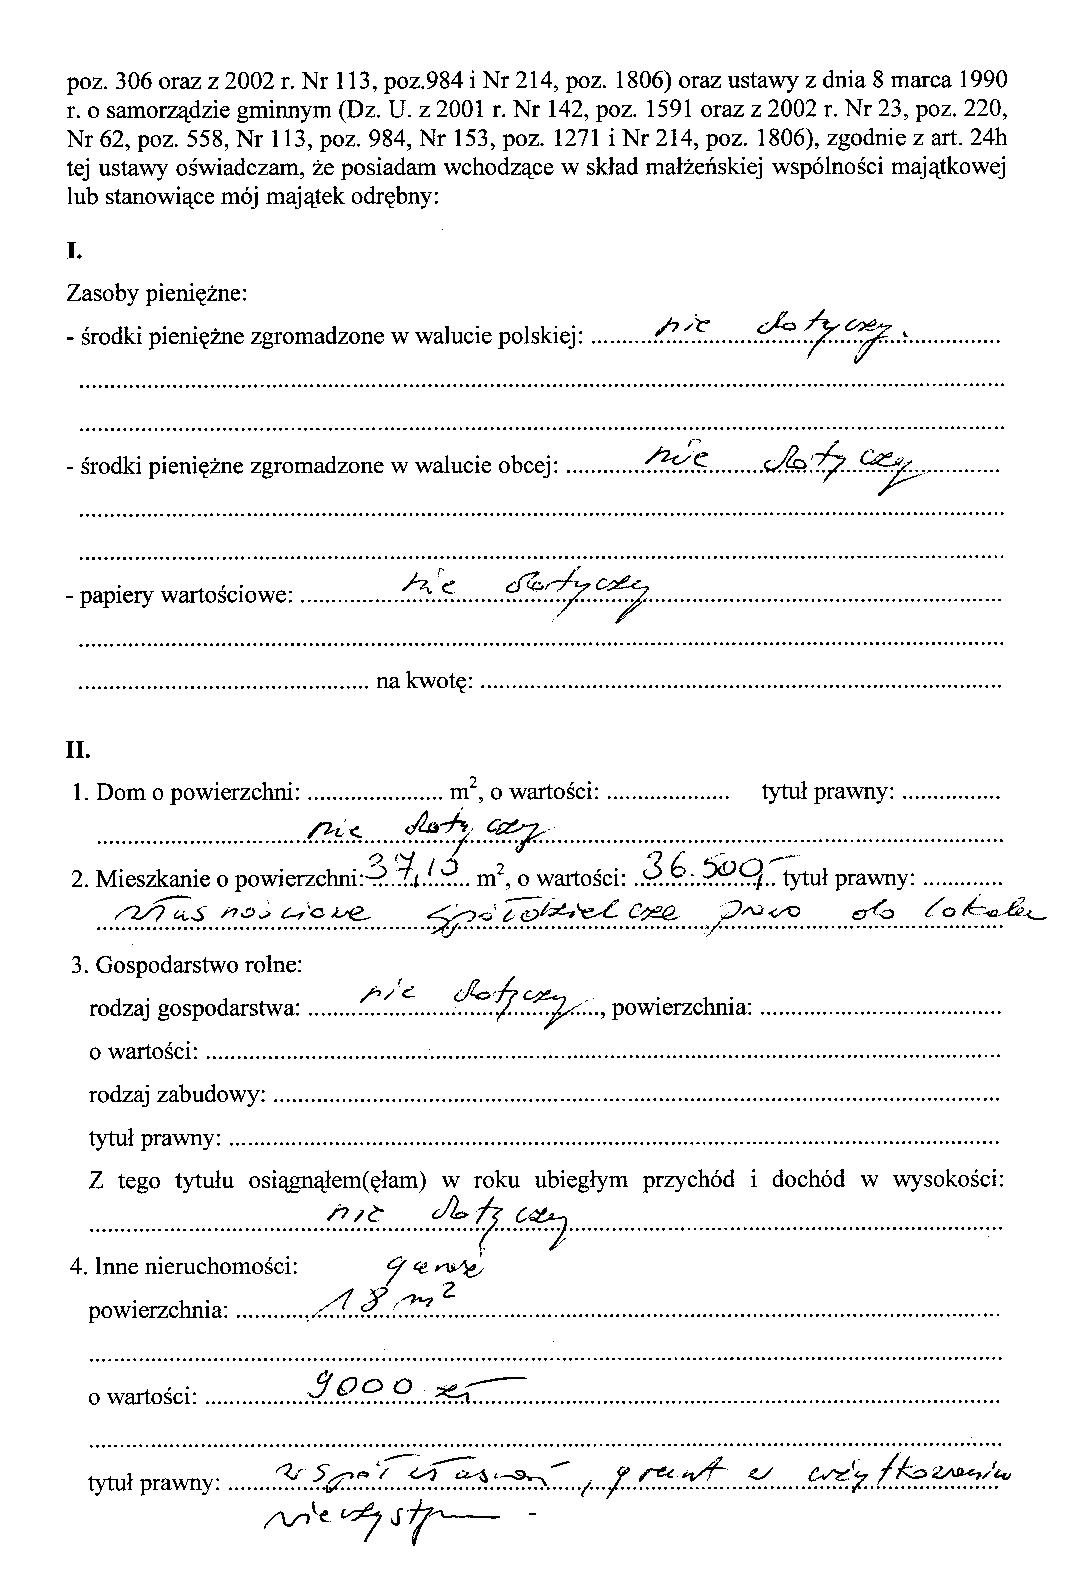 poz. 306 oraz z 2002 r. Nr 113, poz.984 i Nr 214, poz. 1806) oraz ustawy z dnia 8 marca 1990
r. o samorządzie gminnym (Dz. U. z 2001 r. Nr 142, poz. 1591 oraz z 2002 r. Nr 23, poz. 220,
Nr 62, poz. 558, Nr 113, poz. 984, Nr 153, poz. 1271 i Nr 214, poz. 1806), zgodnie z art. 24h
tej ustawy oświadczam, że posiadam wchodzące w skład małżeńskiej wspólności majątkowej
lub stanowiące mój majątek odrębny:
I.
Zasoby pieniężne:
- środki pieniężne zgromadzone w walucie polskiej: nie dotyczy.
- środki pieniężne zgromadzone w walucie obcej: nie dotyczy
- papiery wartościowe: nie dotyczy
na kwotę:
II.
1. Dom o powierzchni: m², o wartości: tytuł prawny:
nie dotyczy
2. Mieszkanie o powierzchni: m², o wartości: 36.500,- tytuł prawny:
własnościowe spółdzielcze prawo do lokalu
3. Gospodarstwo rolne:
rodzaj gospodarstwa: nie dotyczy, powierzchnia:
o wartości:
rodzaj zabudowy:
tytuł prawny:
Z tego tytułu osiągnąłem(ęłam) w roku ubiegłym przychód i dochód w wysokości:
nie dotyczy
4. Inne nieruchomości: garaż
powierzchnia: 18 m²
o wartości: 9000 zł
tytuł prawny: współwłasność, grunt w użytkowaniu
wieczystym -